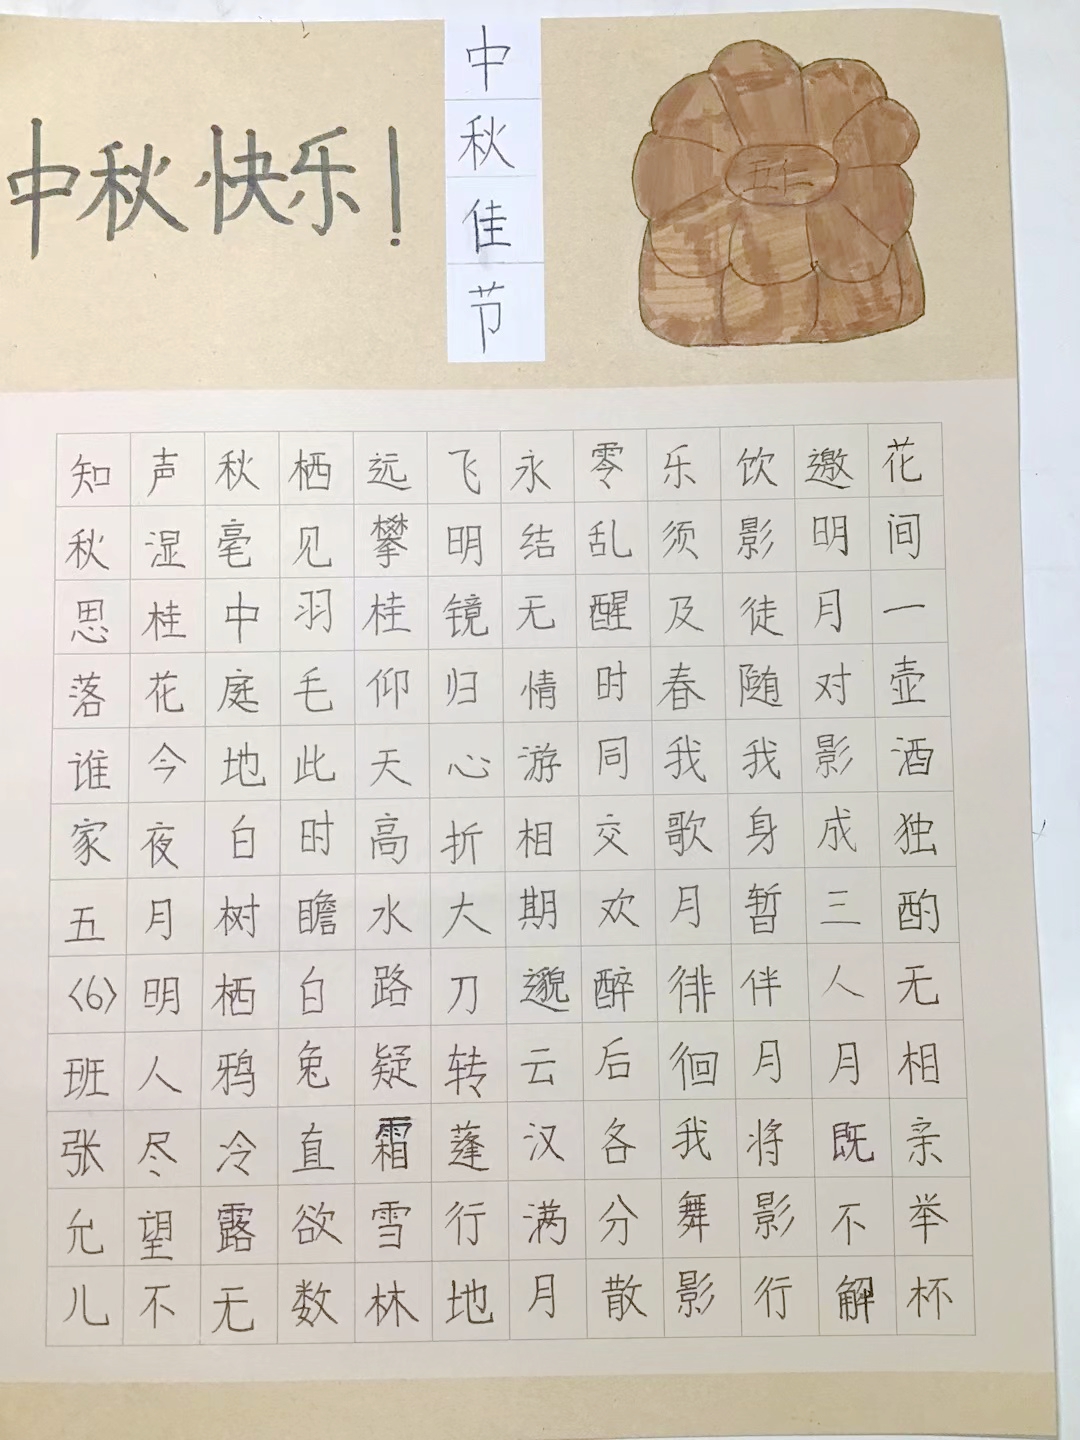 中秋快乐!
中秋佳节
五仁
花间一壶酒独酌无相亲举杯
邀明月对影成三人月既不解
饮影徒随我身暂伴月将影行
乐须及春我歌月徘徊我舞影
零乱醒时同交欢醉后各分散
永结无情游相期邈云汉满月
飞明镜归心折大刀转蓬行地
远攀桂仰天高水路疑霜雪林
栖见羽毛此时瞻白兔直欲数
秋毫中庭地白树栖鸦冷露无
声湿桂花今夜月明人尽望不
知秋思落谁家五〈6〉班张允儿